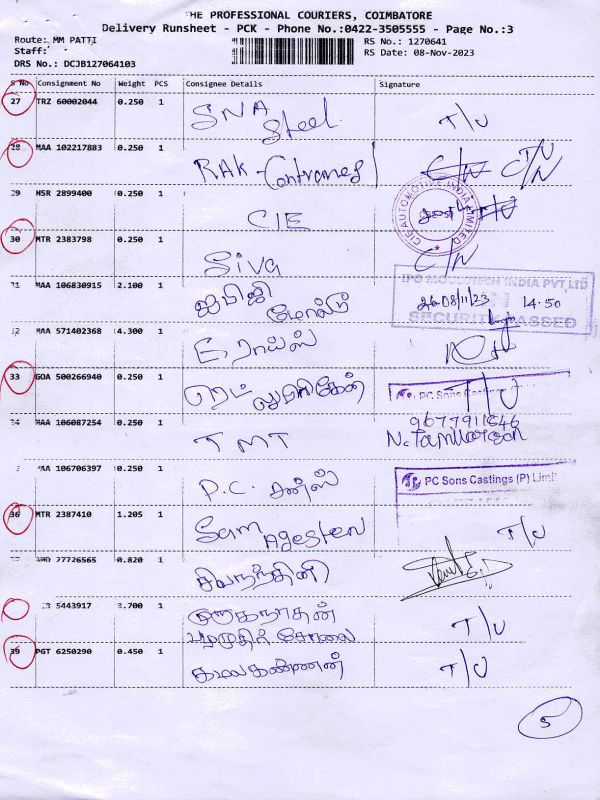 THE PROFESSIONAL COURIERS, COIMBATORE
Delivery Runsheet - PCK - Phone No.:0422-3505555 - Page No.:3
Route: MM PATTI
RS No.: 1270641
Staff:
RS Date: 08-Nov-2023
DRS No.: DCJB127064103
S No Consignment No Weight PCS Consignee Details Signature
27 TRZ 60002044 0.250 1 SNA Steel T/U
28 MAA 102217883 0.250 1 RAK - C/N C/N
29 HSR 2899400 0.250 1 CIE
CIE AUTOMOTIVE INDIA LIMITED
30 MTR 2383798 0.250 1 Siva C/N
31 MAA 106830915 2.100 1 ஐபிஜி மோல்டு
IPG MOULDTECH INDIA PVT LTD
IN 08/11/23 14.50
SECURITY PASSED
32 MAA 571402368 4.300 1 E ராய்ஸ்
33 GOA 500266940 0.250 1 ரெட் லூபிரிகேன் T/U
PC Sons Castings
34 MAA 106087254 0.250 1 TMT
P.C. சன்ஸ்
MAA 106706397 0.250 1
PC Sons Castings (P) Limi
36 MTR 2387410 1.205 1 Sam T/U
27726565 0.820 1 சிவநந்தினி
5443917 3.700 1 முருகநாதன்
பழமுதிர் சோலை T/U
39 PGT 6250290 0.450 1 கமலகண்ணன் T/U
5